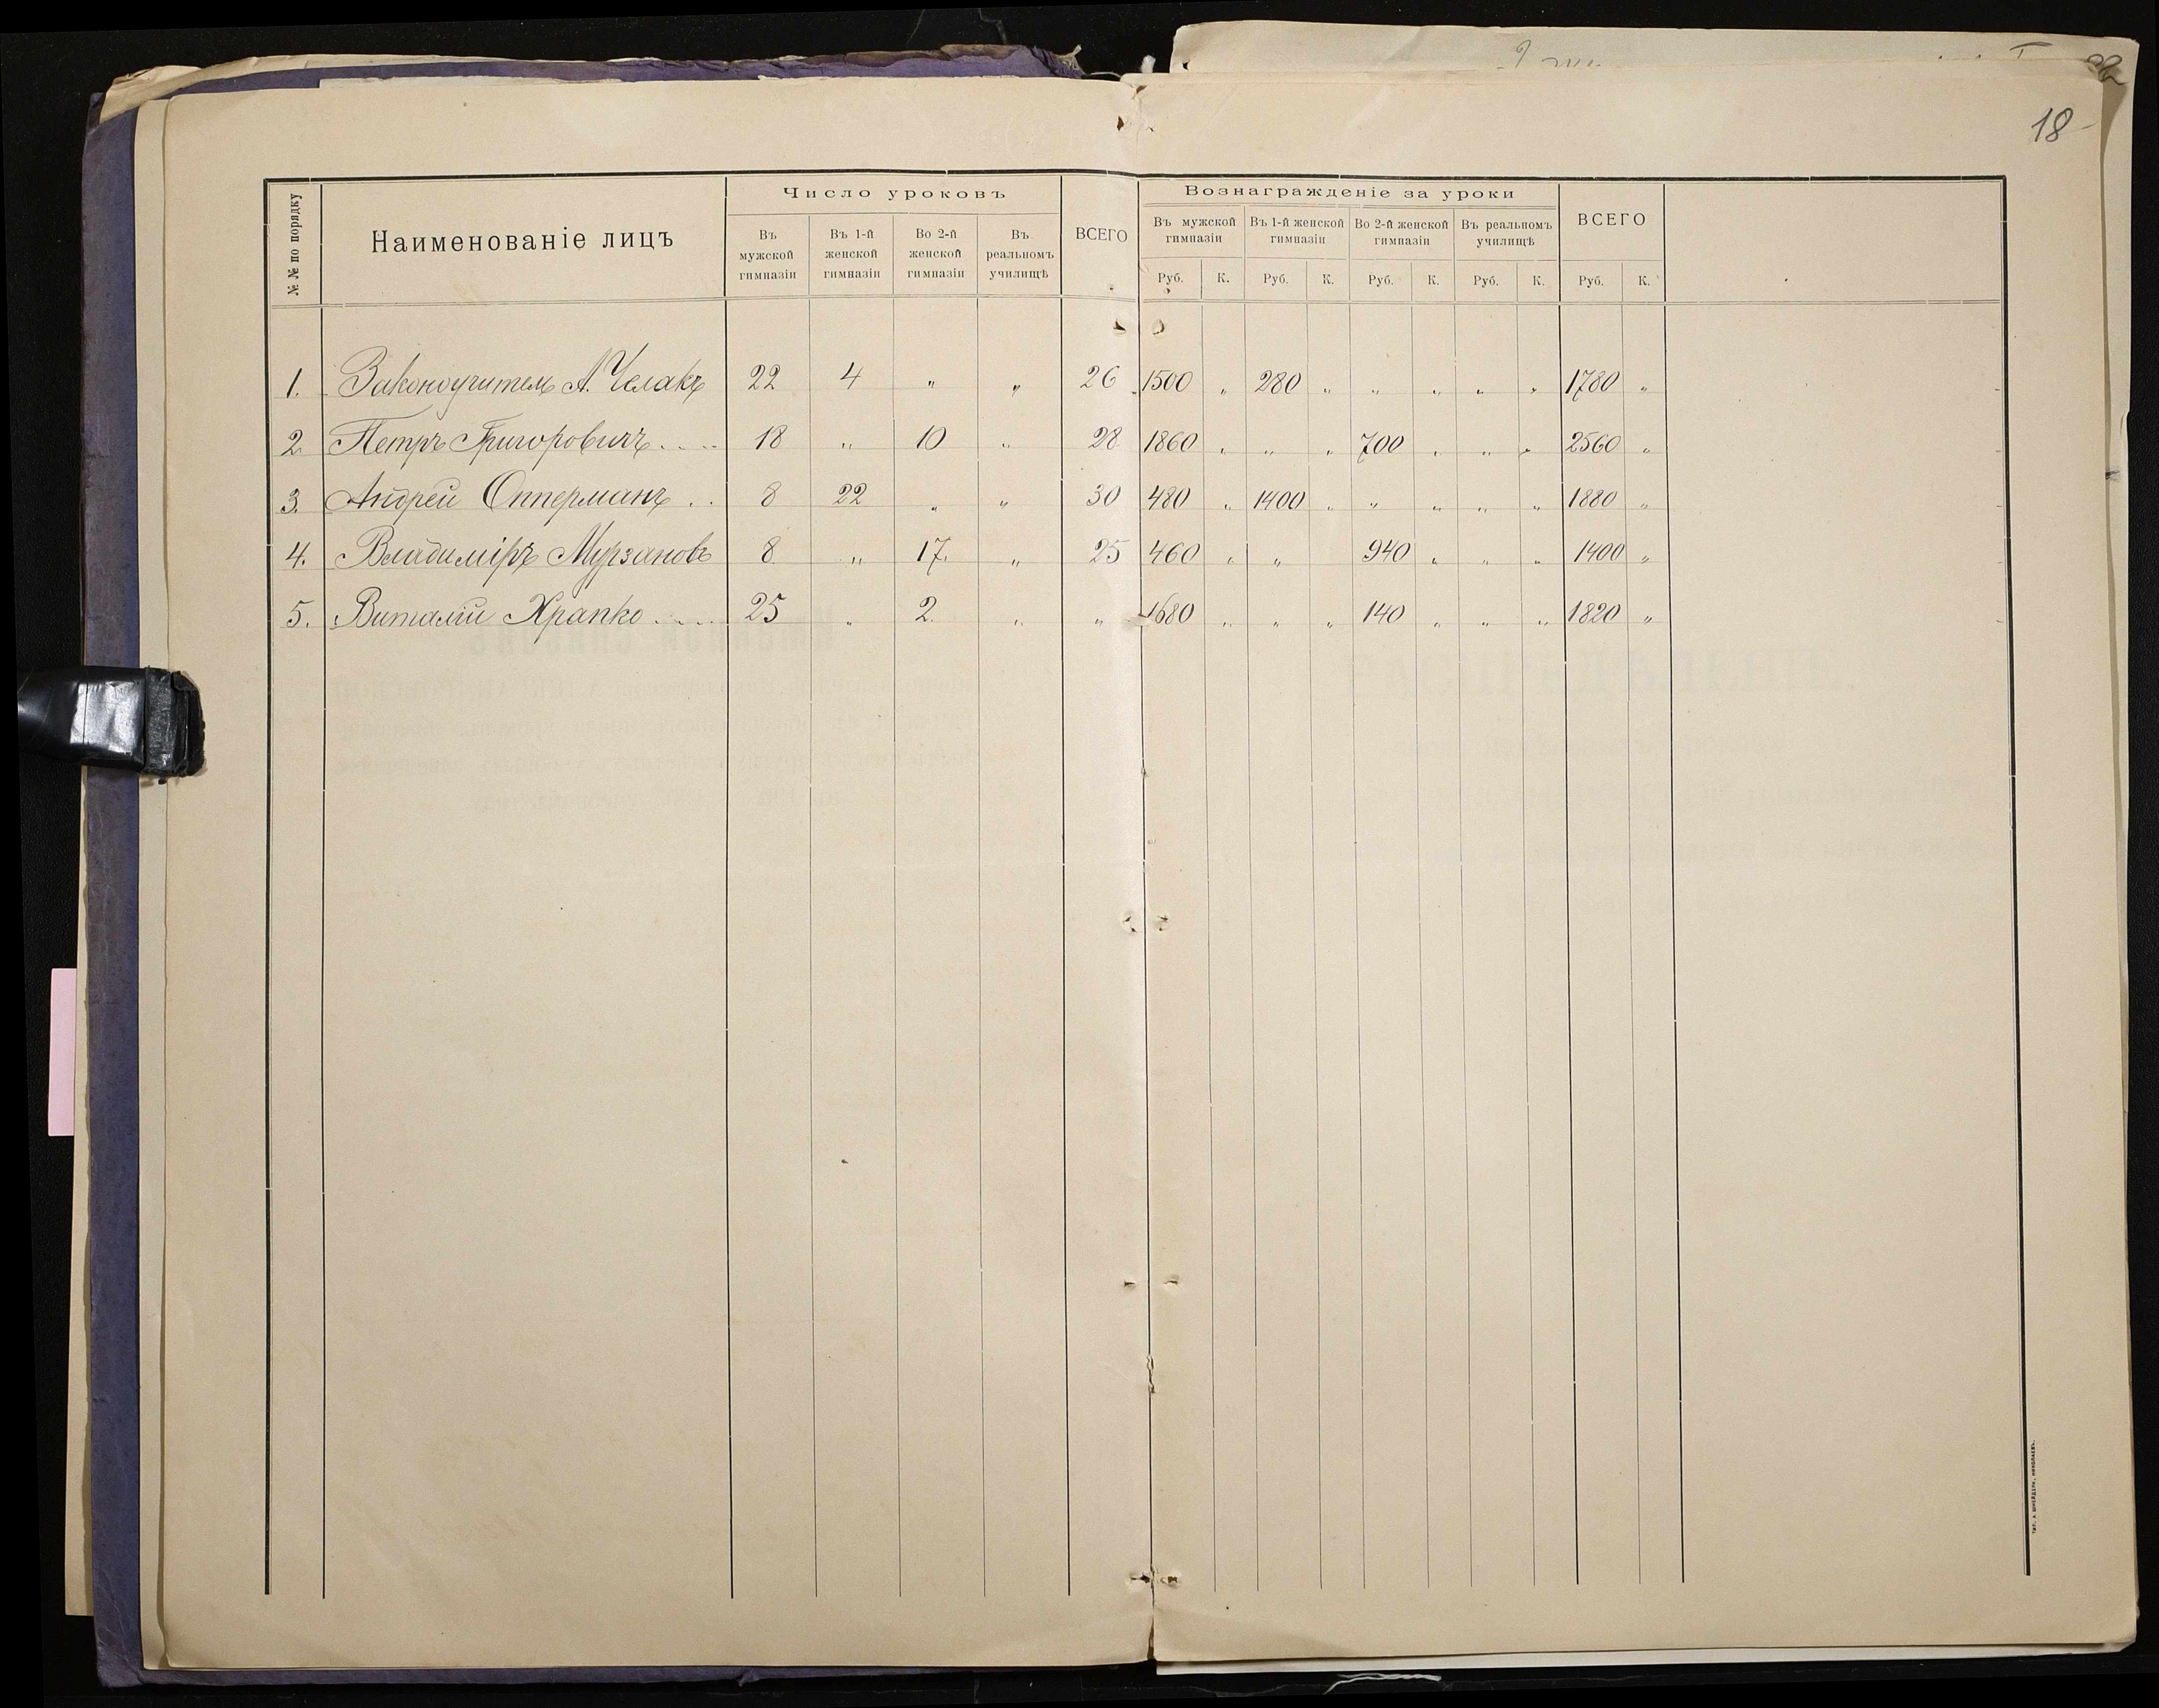 18
№ № по порядку
Наименованіе лицъ
Число уроковъ
Въ мужской гимназіи
Въ 1-й женской гимназіи
Во 2-й женской гимназіи
Въ реальномъ училищѣ
ВСЕГО
Вознагражденіе за уроки
Въ мужской гимназіи
Въ 1-й женской гимназіи
Во 2-й женской гимназіи
Въ реальномъ училищѣ
ВСЕГО
Руб. К. Руб. К. Руб. К. Руб. К. Руб. К.
1. Законоучитель А. Челакъ 22 4 „ „ 26 1500 „ 280 „ „ „ „ „ 1780 „
2. Петръ Григоровичъ .... 18 „ 10 „ 28 1860 „ „ „ 700 „ „ „ 2560 „
3. Андрей Опперманъ .. 8 22 „ „ 30 480 „ 1400 „ „ „ „ „ 1880 „
4. Владиміръ Мурзановъ 8 „ 17. „ 25 460 „ „ 940 „ „ „ 1400 „
5. Виталій Храпко .... 25 „ 2. „ „ 1680 „ „ „ 140 „ „ „ 1820 „
ТИП. А. ШНЕЙДЕРА, НИКОЛАЕВЪ.